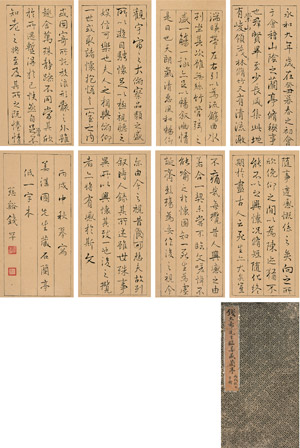 永和九年歲在癸丑暮春之初會
于會稽山陰之蘭亭脩禊事
也群賢畢至少長咸集此地
有峻領茂林脩竹又有清流激
湍暎帶左右引以為流觴曲水
列坐其次雖無絲竹管弦之
盛一觴一詠亦足以暢敘幽情
是日也天朗氣清惠風和暢仰
觀宇宙之大俯察品類之盛
所以遊目騁懷足以極視聽之
娛信可樂也夫人之相與俯仰
一世或取諸懷抱悟言一室之內
或因寄所託放浪形骸之外雖
趣舍萬殊靜躁不同當其欣
於所遇暫得於己快然自足不
知老之將至及其所之既惓情
隨事遷感慨係之矣向之所
欣俛仰之間以為陳迹猶不
能不以之興懷況脩短隨化終
期於盡古人云死生亦大矣豈
不痛哉每攬昔人興感之由
若合一契未嘗不臨文嗟悼不
能喻之於懷固知一死生為虛
誕齊彭殤為妄作後之視今
亦由今之視昔悲夫故列
敘時人錄其所述雖世殊事
異所以興懷其致一也後之攬
者亦將有感於斯文
丙戌中秋
先生藏石蘭亭
一字本